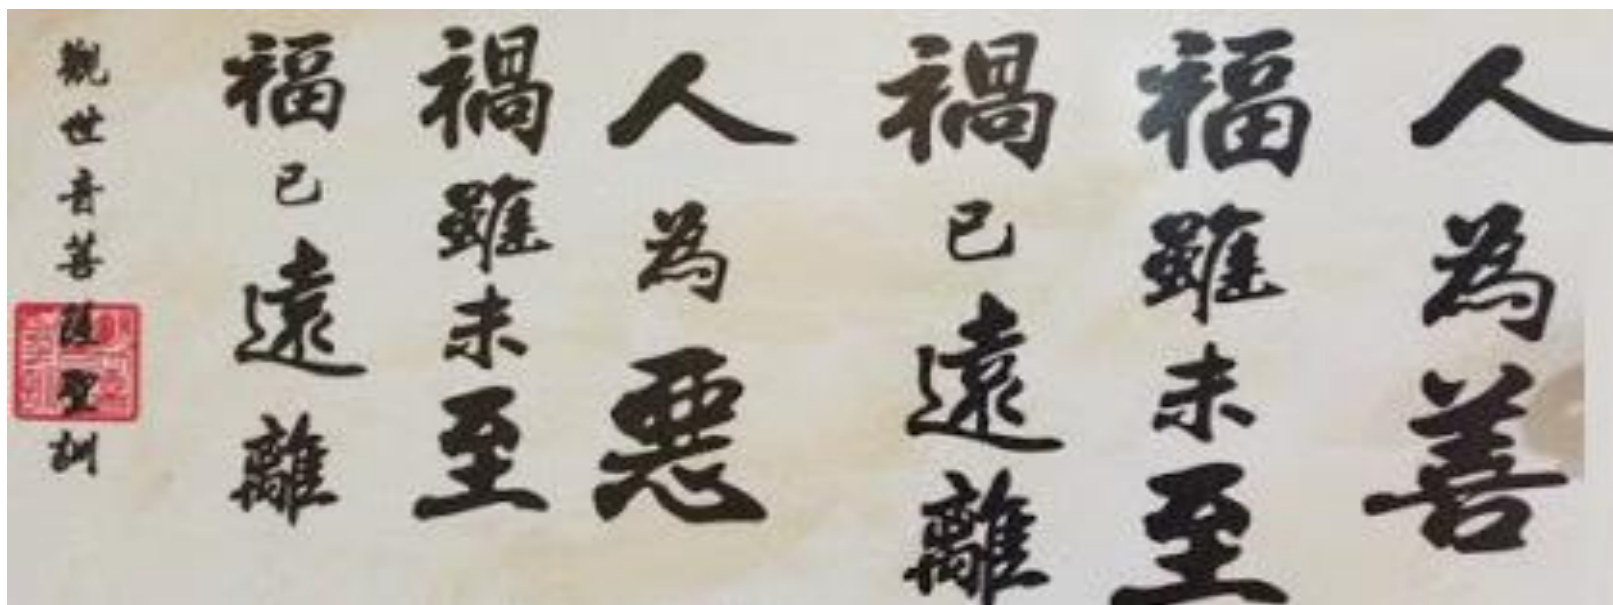 人為善
福雖未至
禍已遠離
人為惡
禍雖未至
福已遠離
觀世音菩薩聖訓